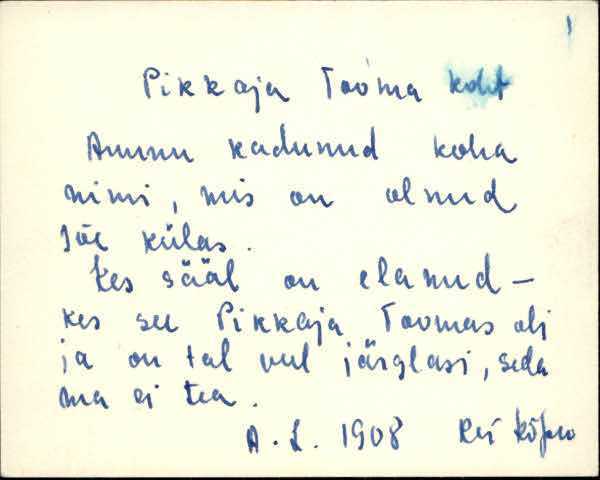 Pikkaja Tooma koht
Ammu kadunud koha
nimi, mis on olnud
Jõe külas.
Kes sääl on elanud –
kes see Pikkaja Toomas oli
ja on tal veel järglasi, seda
ma ei tea.
A. L. 1908 Rei Kõpu